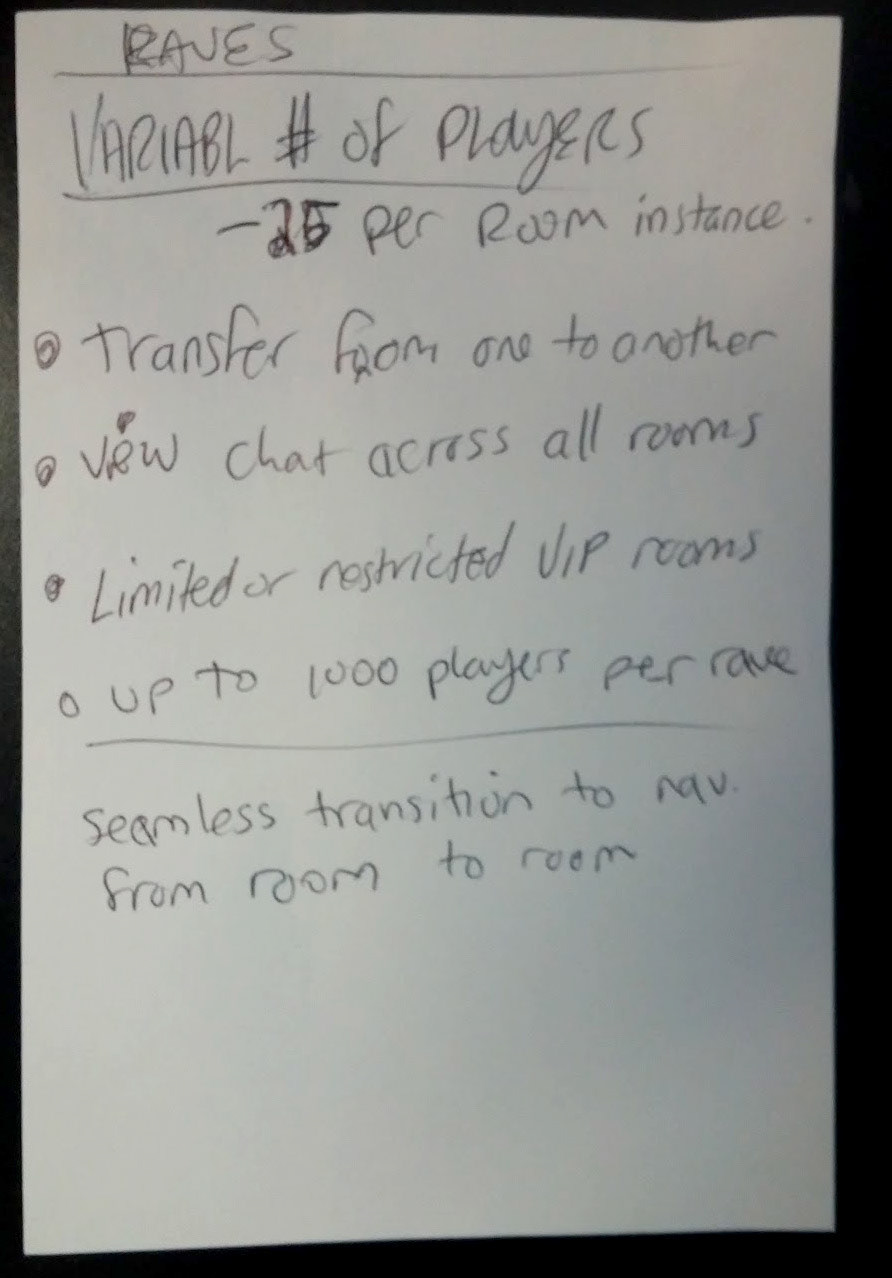 RAVES
VARIABL # of PLAYERS
- 25 per Room instance.
Transfer from one to another
View chat across all rooms
Limited or restricted VIP rooms
UP to 1000 players per rave
seamless transition to nav.
from room to room